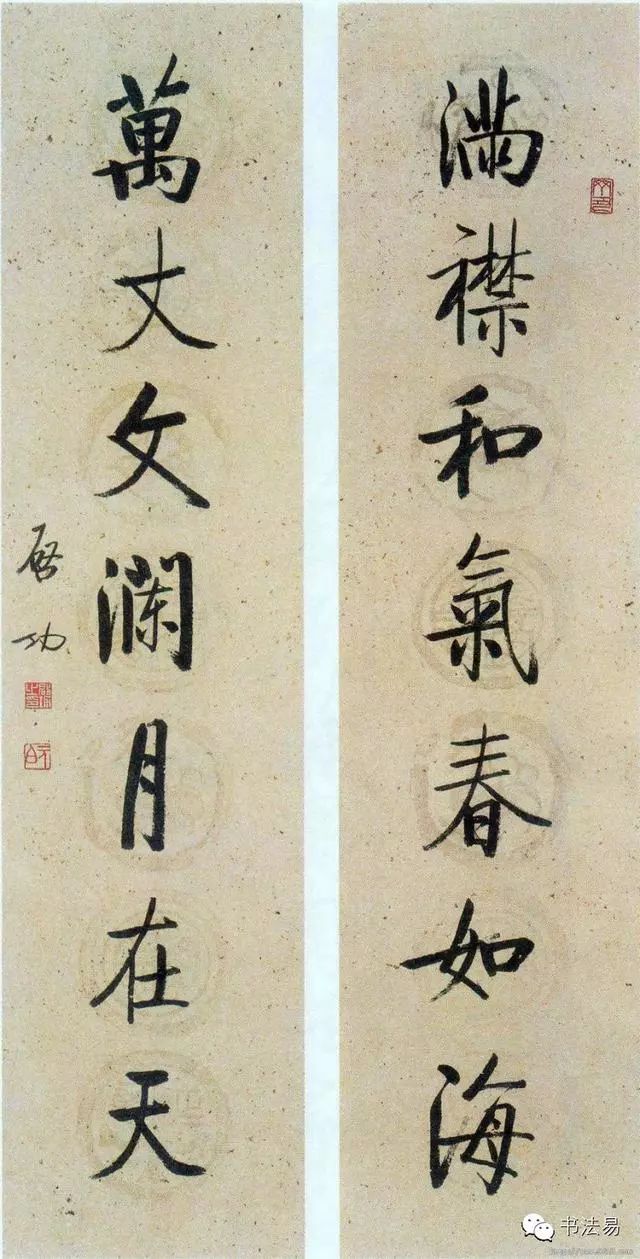 满襟和氣春如海
萬丈文瀾月在天
啓功
书法易